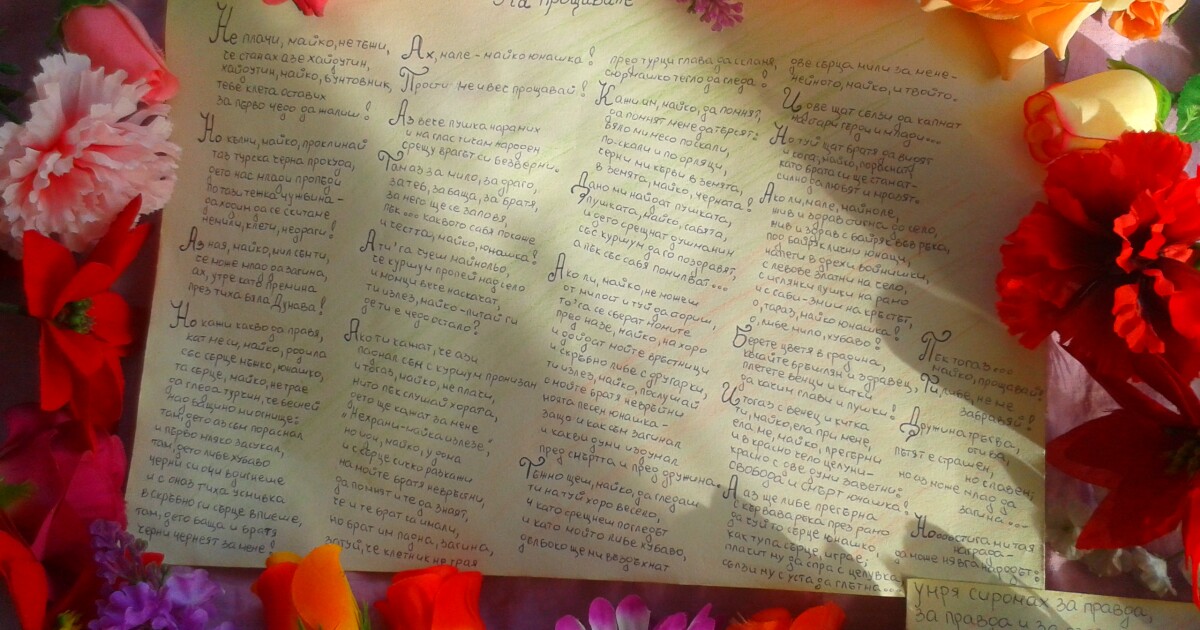 На прощаване
Не плачи, майко, не тъжи,
че станах азе хайдутин,
хайдутин, майко, бунтовник,
тебе клета оставих
за първо чедо да жалиш!
Но кълни, майко, проклинай
таз турска черна прокуда,
дето нас млади пропъди
по тази тежка чужбина -
да ходим да се скитаме
немили, клети, недраги!
Аз зная, майко, мил съм ти,
че може млад да загина,
ах, утре като премина
през тиха бяла Дунава!
Но кажи какво да правя,
кат ме си, майко, родила
със сърце мъжко, юнашко,
та сърце, майко, не трае
да гледа турчин, че бесней
над бащино ми огнище:
там, дето аз съм пораснал
и първо мляко засукал,
там, дето либе хубаво
черни си очи вдигнеше
и с оназ тиха усмивка
в скръбно ги сърце впиеше,
там, дето баща и братя
черни чернеят за мене!
Ах, мале - майко юнашка!
Прости ме и веч прощавай!
Аз вече пушка нарамих
и на глас тичам народен
срещу врагът си безверни.
Там аз за мило, за драго,
за теб, за баща, за братя,
за него ще се заловя,
пък... каквото сабя покаже
и честта, майко, юнашка!
А ти 'га чуеш майнольо,
че куршум пропей над село
и момци вече наскачат,
ти излез, майко - питай ги
де ти е чедо остало?
Ако ти кажат, че азе
паднал съм с куршум пронизан
и тогаз, майко, не плачи,
нито пък слушай хората,
дето ще кажат за мене
"Нехрани-майка излезе"
но иди, майко, у дома
и с сърце сичко разкажи
на мойте братя невръстни,
да помнят и те да знаят,
че и те брат са имали,
но брат им падна, загина,
затуй, че клетник не трая
пред турци глава да скланя,
сюрмашко тегло да гледа!
Кажи им, майко, да помнят,
да помнят мене да търсят:
бяло ми месо по скали,
по скали и по орляци,
черни ми кърви в земята,
в земята, майко, черната!
Дано ми найдат пушката,
пушката, майко, сабята,
и дето срещнат душманин
със куршум да го поздравят,
а пък със сабя помилват...
Ако ли, майко, не можеш
от милост и туй да сториш,
то 'га се сберат момите
пред назе, майко, на хоро
и дойдат мойте връстници
и скръбно либе с другарки,
ти излез, майко, послушай
с мойте братя невръстни
моята песен юнашка -
защо и как съм загинал
и какви думи издумал
пред смъртта и пред дружина.
Тъжно щеш, майко, да гледаш
ти на туй хоро весело,
и като срещнеш погледът
и като мойто либе хубаво,
дълбоко ще ми въздъхнат
две сърца мили за мене -
нейното, майко, и твойто.
И две щат сълзи да капнат
на стари гърди и млади...
Но туй щат братя да видят
и кога, майко, пораснат
като брата си ще станат -
силно да любят и мразят.
Ако ли, мале, майноле,
жив и здрав стигна до село,
жив и здрав с байряк във ръка,
под байряк лични юнаци,
напети в дрехи войнишки,
с левове златни на чело,
с иглянки пушки на рамо
и с саби-змии на кръстът,
о, тагаз, майко юнашка!
о, либе мило, хубаво!
Берете цветя в градина,
късайте бръшлян и здравец,
плетете венци и китки
да кичим глави и пушки!
И тогаз с венец и китка
ти, майко, ела при мене
ела ме, майко, прегърни
и в красно чело целуни -
красно с две думи заветни:
свобода и смърт юнашка!
А аз ще либе прегърна
с кървава ръка през рамо
да чуй то сърце юнашко,
как тупа сърце, играе;
плачът му да спра с целувка,
сълзи му с уста да глътна...
Пък тогаз...
майко, прощавай!
Ти, либе, не ме
забравяй!
Дружина тръгва,
отива,
пътят е страшен,
но славен;
но аз може млад да
загина...
Но довол'
stига ми тая
награда -
да може нявга народът:
умря сиромах за правда,
за правда и за